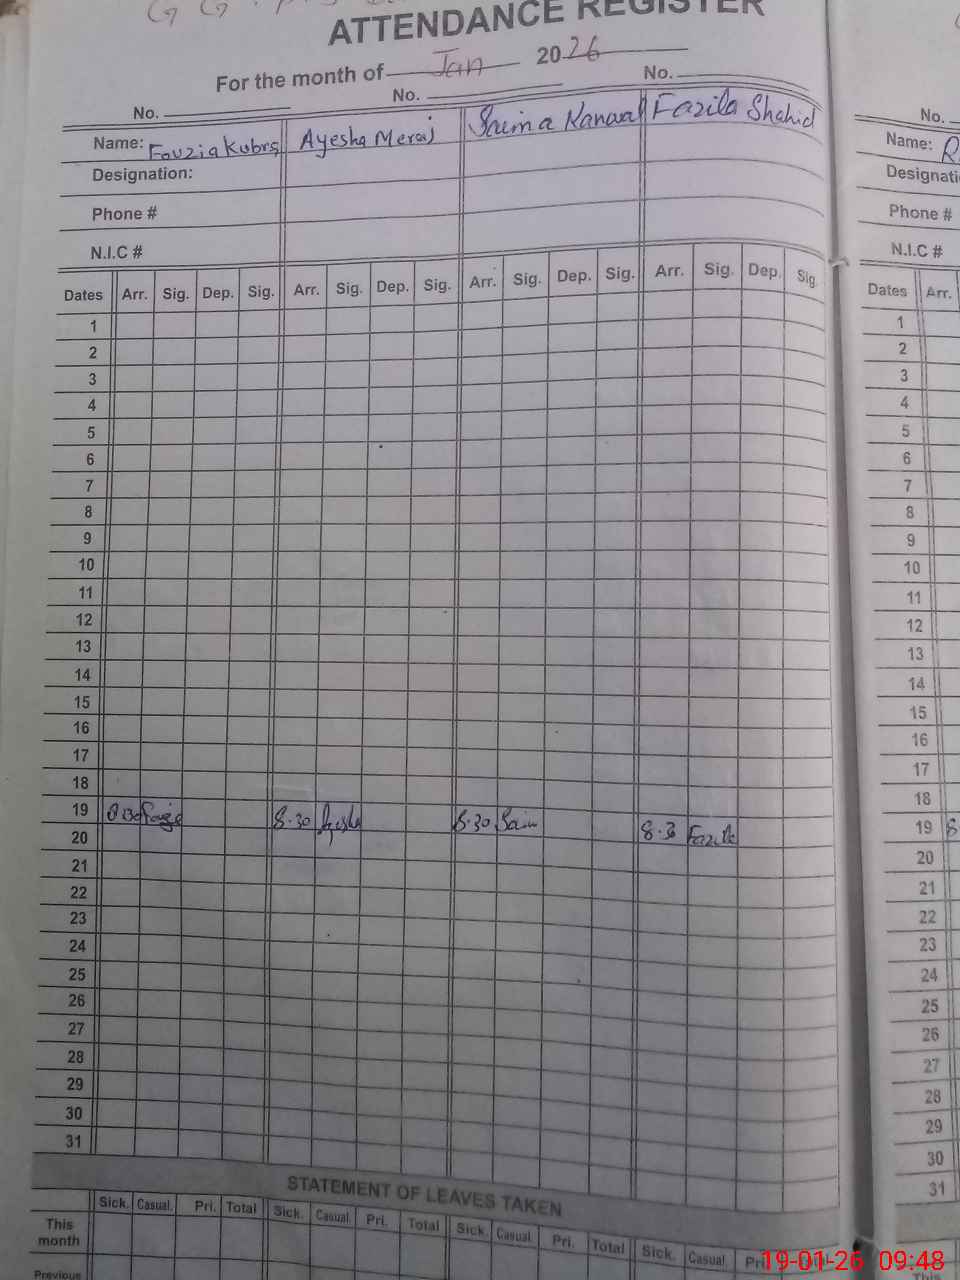 ATTENDANCE REGISTER
For the month of Jan 2026
No. No. No.
Name: Fouzia Kubra Ayesha Meraj Saima Kanwal Fazila Shahid
Designation:
Phone #
N.I.C #
Dates Arr. Sig. Dep. Sig. Arr. Sig. Dep. Sig. Arr. Sig. Dep. Sig. Arr. Sig. Dep. Sig.
1
2
3
4
5
6
7
8
9
10
11
12
13
14
15
16
17
18
19 8.30 Ayesha 8.30 Saim 8.3 Fazila
20
21
22
23
24
25
26
27
28
29
30
31
STATEMENT OF LEAVES TAKEN
Sick. Casual. Pri. Total Sick. Casual. Pri. Total Sick. Casual. Pri. Total Sick. Casual. Pri.
This month
Previous
No.
Name: R
Designati
Phone #
N.I.C #
Dates Arr.
1
2
3
4
5
6
7
8
9
10
11
12
13
14
15
16
17
18
19 8
20
21
22
23
24
25
26
27
28
29
30
31
19-01-26 09:48